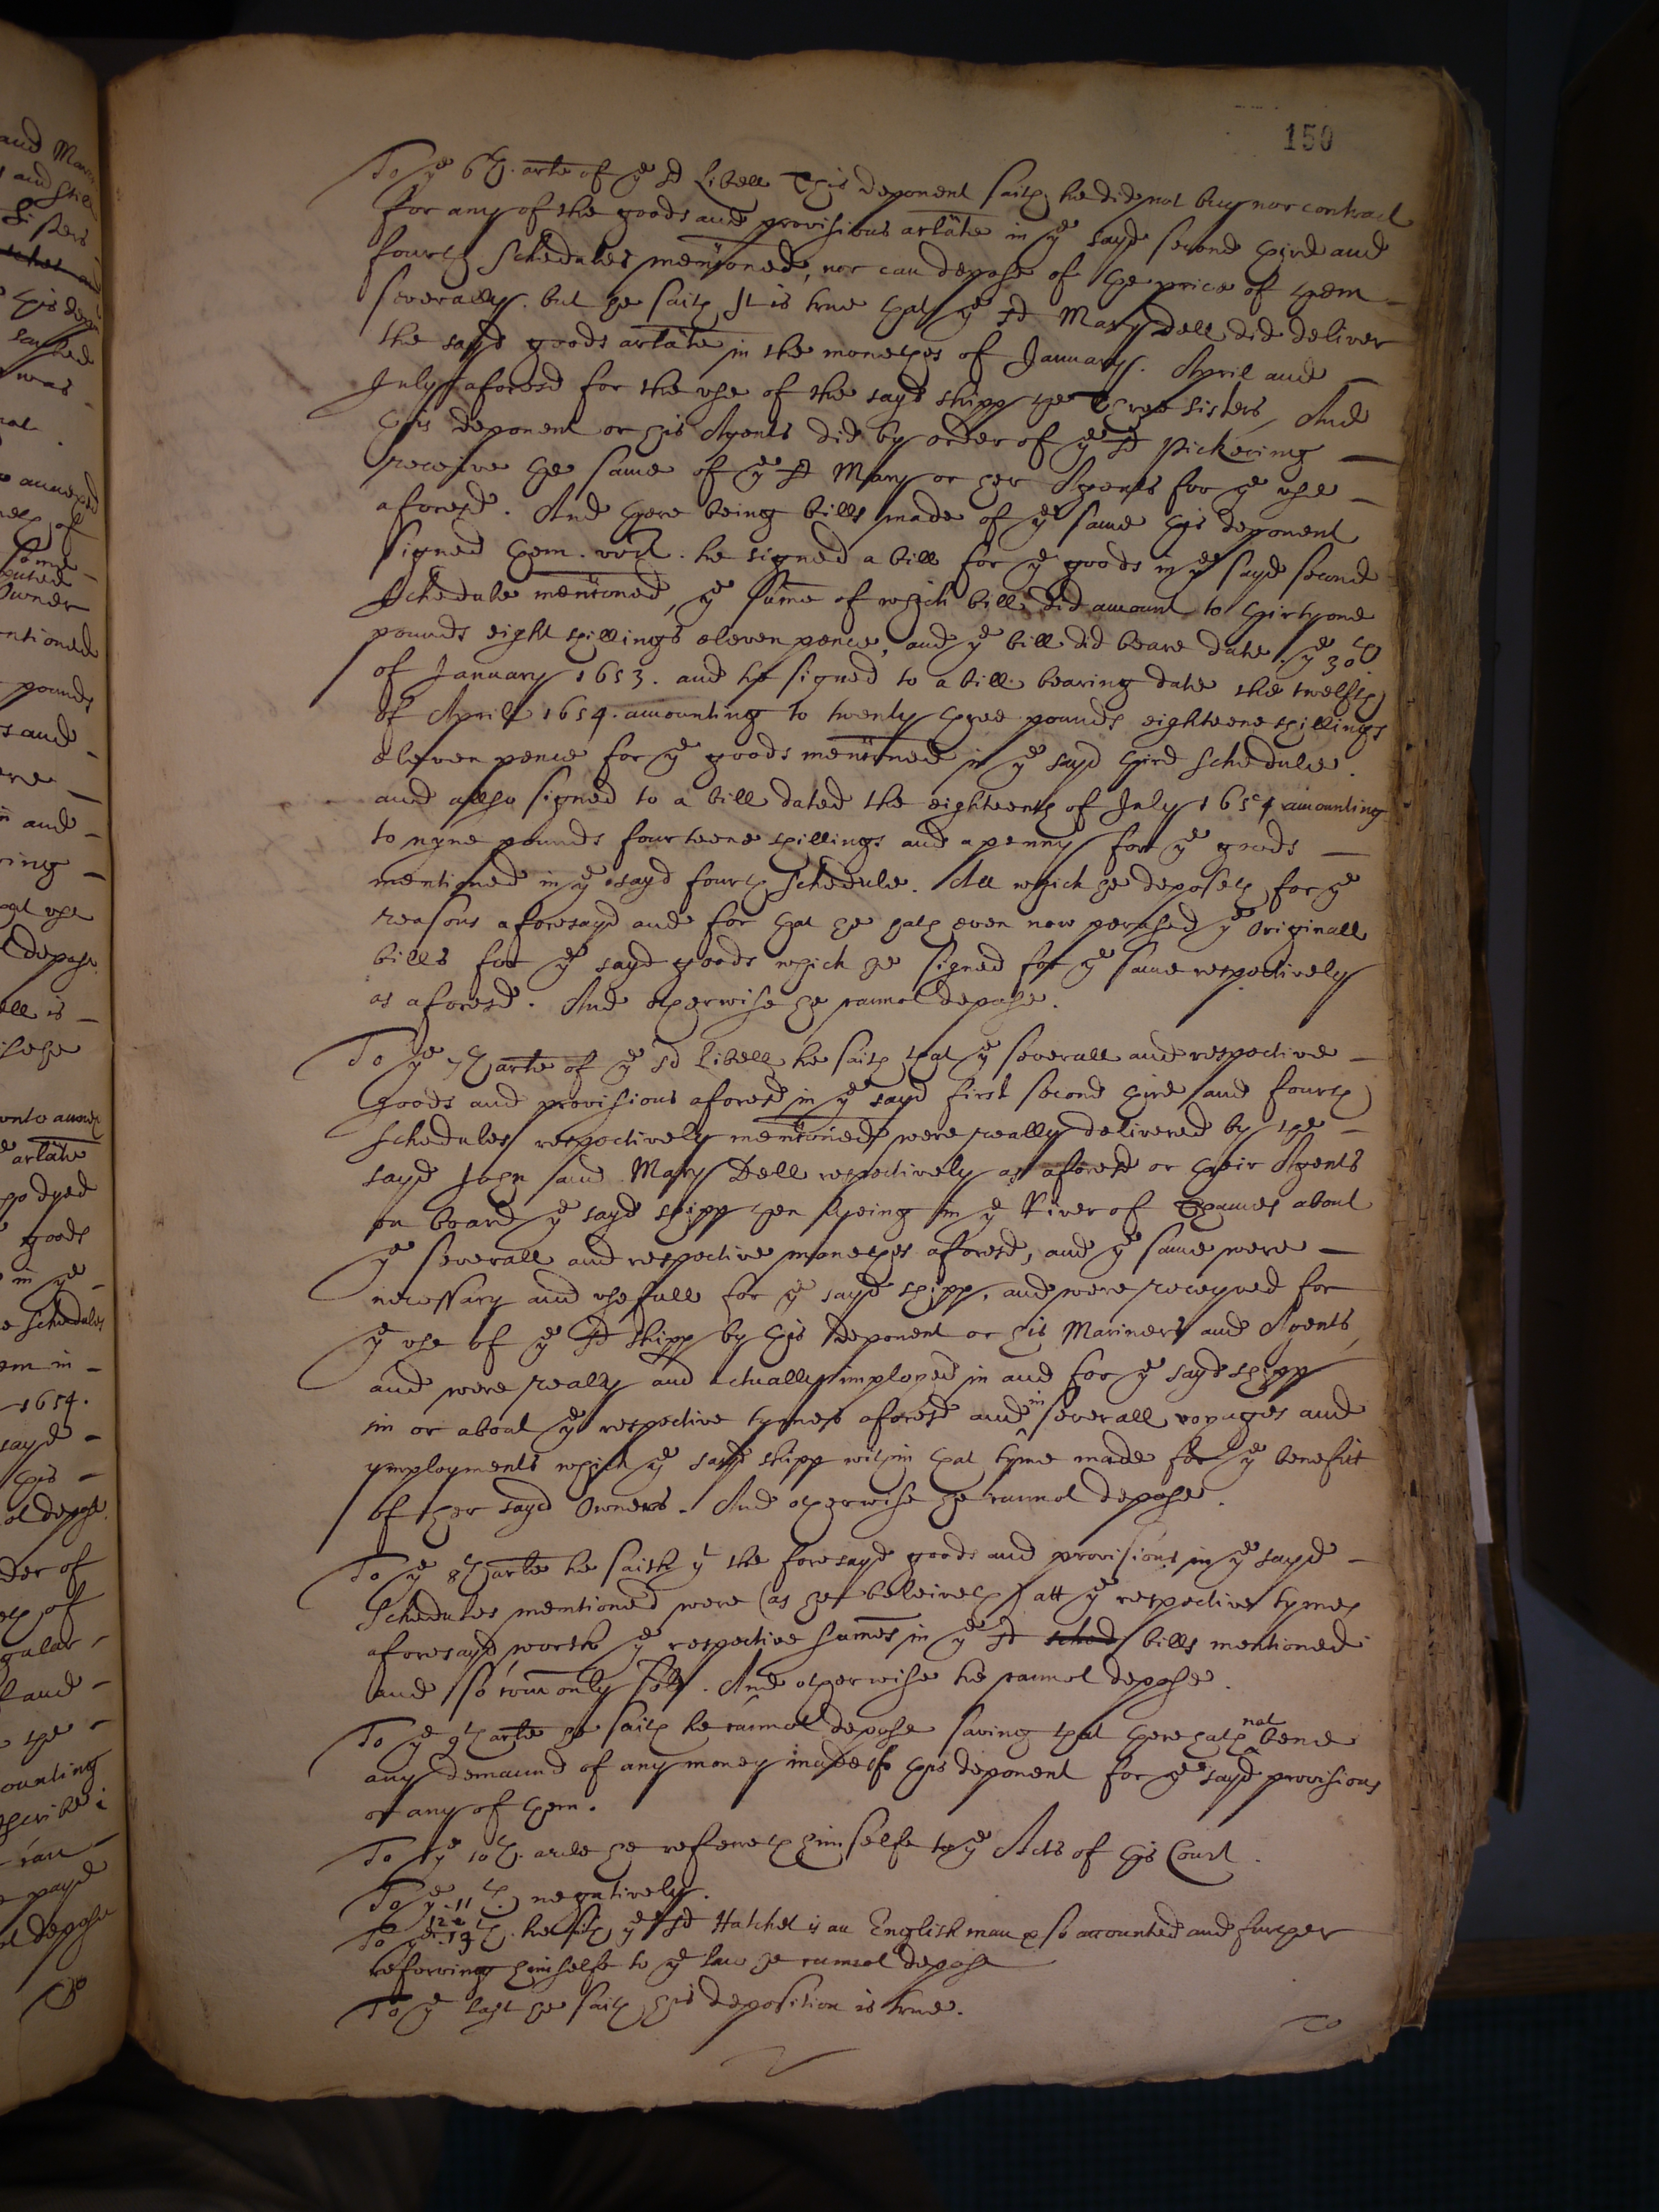 150
To ye 6th. arte of ye sd Libell This deponent saith he did not buy nor contract
for any of the goods and provisions arlate in ye sayd second third and
fourth Schedules mentioned, nor can depose of the price of them
severally. but he saith It is true that ye sd Mary Dell did deliver
the sayd goods arlate in the monethes of January. April and
July aforesd for the use of the sayd shipp the Three Sisters, And
this deponent or his Agents did by order of ye sd Pickering
receive the same of ye sd Mary or her Agents for ye use
aforesd. And there being bills made of ye same this deponent
signed them. vizt. he signed a bill for ye goods in ye sayd second
Schedule mentioned, ye sume of which bill did amount to thirty one
pounds eight shillings eleven pence, and ye bill did beare date ye 30th
of January 1653. and he signed to a bill bearing date the twelfth
of April 1654. amounting to twenty three pounds eighteene shillings
eleven pence for ye goods mentioned in ye sayd third Schedule.
and allso signed to a bill dated the eighteenth of July 1654 amounting
to nyne pounds fourteene shillings and a penny for ye goods
mentioned in ye sayd fourth Schedule. All which he deposeth for ye
reasons aforesayd and for that he hath even now perused ye Originall
bills for ye sayd goods which he signed for ye same respectively
as aforesd. And otherwise he cannot depose.
To ye 7th arte of ye sd Libell he saith that ye severall and respective
goods and provisions aforesd in ye sayd first second third and fourth
Schedules respectively mentioned were really delivered by the
sayd John and Mary Dell respectively as aforesd or their Agents
on board ye sayd shipp then lyeing in ye River of Thames about
ye severall and respective monethes aforesd, and ye same were
necessary and usefull for ye sayd shipp, and were receyved for
ye use of ye sd shipp by this deponent or his Mariners and Agents,
and were really and actually imployed in and for ye sayd shipp
in or about ye respective tymes aforesd and in severall voyages and
ymployments which ye sayd shipp within that tyme made for ye benefitt
of her sayd Owners. And otherwise he cannot depose.
To ye 8th arte he saith yt the foresayd goods and provisions in ye sayd
Schedules mentioned were (as he beleiveth) att ye respective tymes
aforesayd worth ye respective sumes in ye sd sched bills mentioned
and so comonly sold. And otherwise he cannot depose.
To ye 9th arte he saith he cannot depose saving that there hath not bene
any demaund of any money made of this deponent for ye sayd provisions
or any of them.
To ye 10th. arle he referreth himselfe to ye Acts of this Court.
To ye. 11th. negatively.
To ye 12 13th. he saith ye sd Hatchet is an Englishman & so accounted and further
referring himselfe to ye law he cannot depose
To ye last he saith his deposition is true.
To